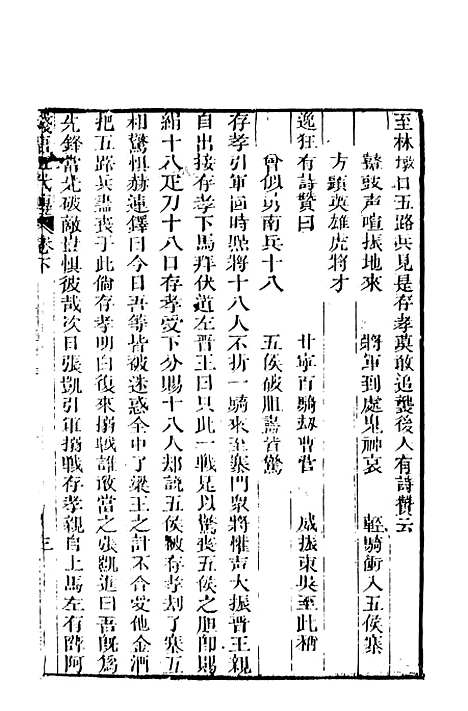 至林墩口五路兵見是存孝莫敢追襲後人有詩贊云
鼙鼓声喧振地來　將軍到處鬼神哀　輕騎衝入五侯寨
方顯英雄虎將才
逸狂有詩贊曰　甘寧百騎劫曹营　威振東吳至此稱
曾似勇南兵十八　五侯破胆喪昔驚
存孝引軍囬時點將十八人不折一騎來至寨門衆將懽声大振晋王親
自出接存孝下馬拜伏道左晋王曰只此一戰足以驚喪五侯之胆卽賜
絹十八疋刀十八口存孝受下分賜十八人却說五侯被存孝刼了寨五
相驚惧赫連鐸曰今日吾等皆被迷惑全中了梁王之計不合受他金酒
把五路兵盡喪于此倘存孝明白復來搦戰誰敢當之張凱進曰吾旣爲
先鋒當先破敵豈惧彼哉次日張凱引軍搦戰存孝親自上馬左有薛阿
殘唐五代傳　卷下　三